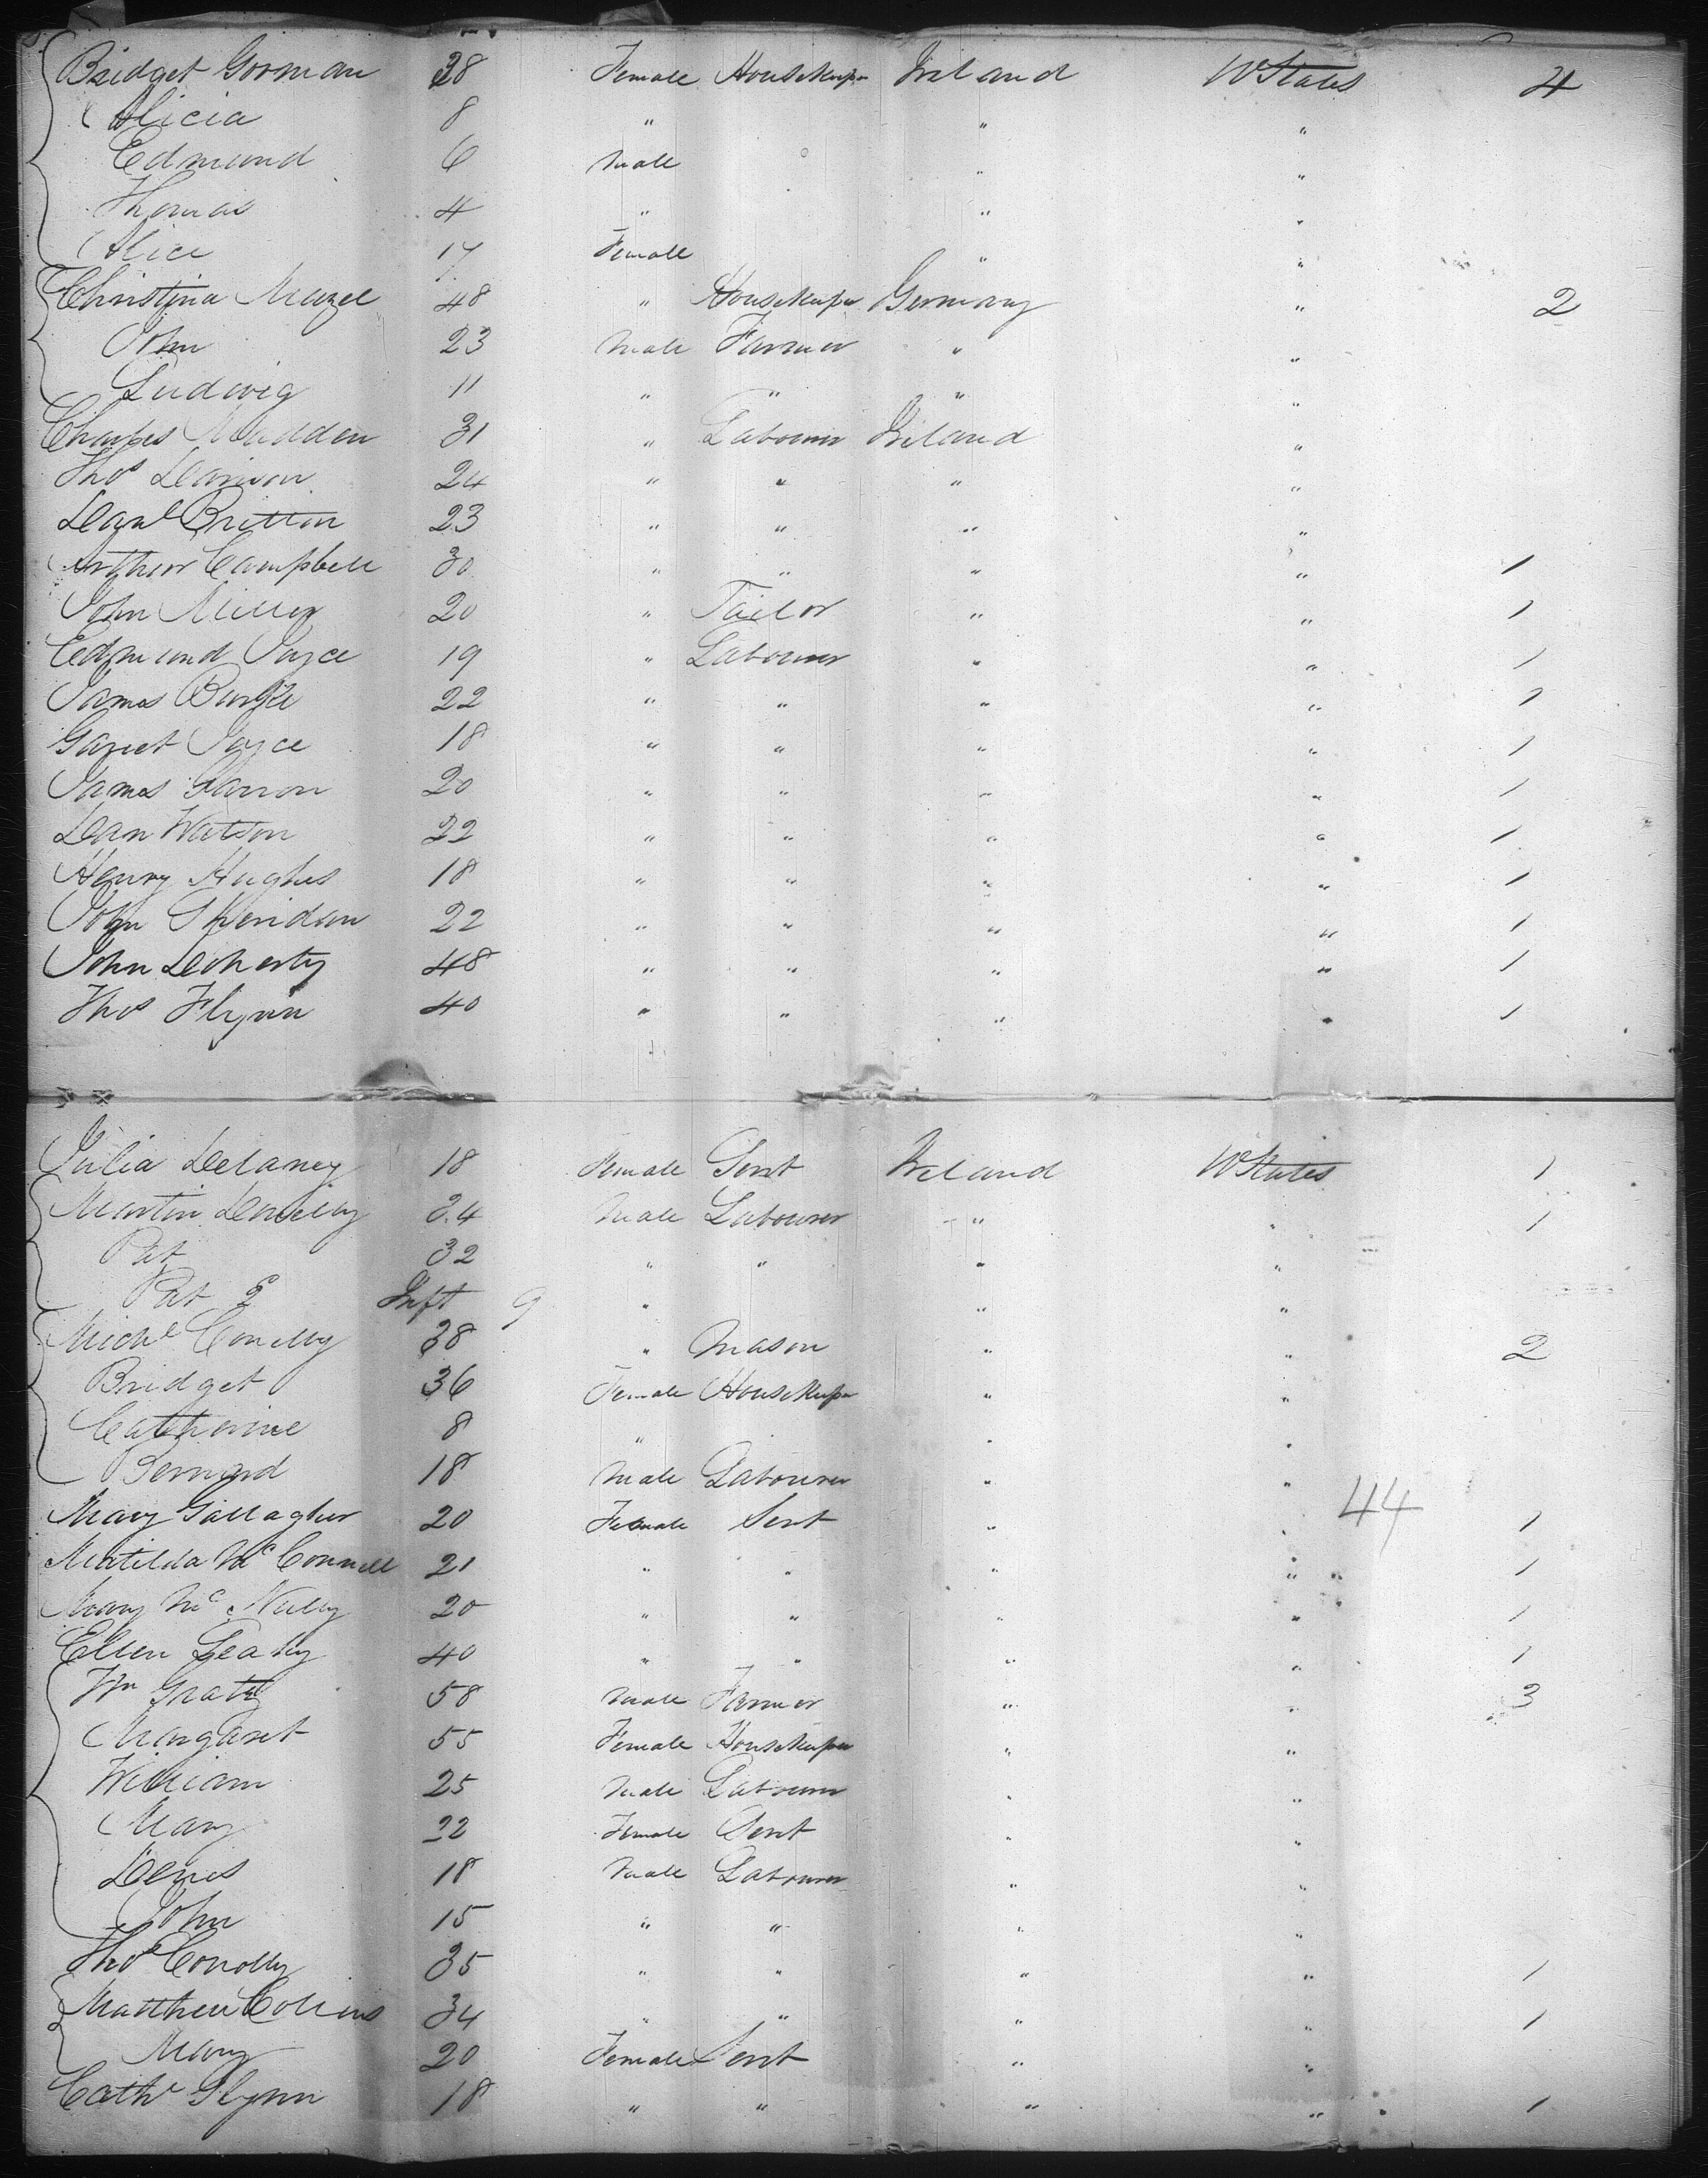 Bridget Gorman 38 Female Housekeper Ireland U States 4
Alicia 8 " " "
Edmund 6 Male " "
Thomas 4 " " "
Alice 17 Female " "
Christina 48 " Housekeper Germany " 2
John 23 Male Farmer " "
Ludwig 11 " " " "
Charles Madden 31 " Labourer Ireland "
Thos 24 " " " "
Danl Britton 23 " " " "
Arthur Campbell 30 " " " " 1
John Miller 20 " Tailor " " 1
Edmund Joyce 19 " Labourer " " 1
James Burke 22 " " " " 1
Garret Joyce 18 " " " " 1
James 20 " " " " 1
Dan Watson 22 " " " " 1
Henry Hughes 18 " " " " 1
John Sheridan 22 " " " " 1
John Doherty 48 " " " " 1
Thos Flynn 40 " " " " 1
Julia Delaney 18 Female Servt Ireland U States 1
Martin 34 Male Labourer " " 1
Pat 32 " " " "
Pat 2 Inft 9 " " "
Michl Conelly 38 " Mason " " 2
Bridget 36 Female Housekeper " "
Catherine 8 " " "
Bernard 18 Male Labourer " "
44
Mary Gallagher 20 Female Servt " " 1
Matilda McConnell 21 " " " " 1
Mary McNulty 20 " " " " 1
Ellen Leahy 40 " " " " 1
Wm 58 Male Farmer " " 3
Margaret 55 Female Housekeper " "
William 25 Male Labourer " "
Mary 22 Female Servt " "
Denis 18 Male Labourer " "
John 15 " " " "
Thos Conolly 35 " " " " 1
Matthew Collins 34 " " " " 1
Mary 20 Female Servt " "
Cathe Glynn 18 " " " " 1